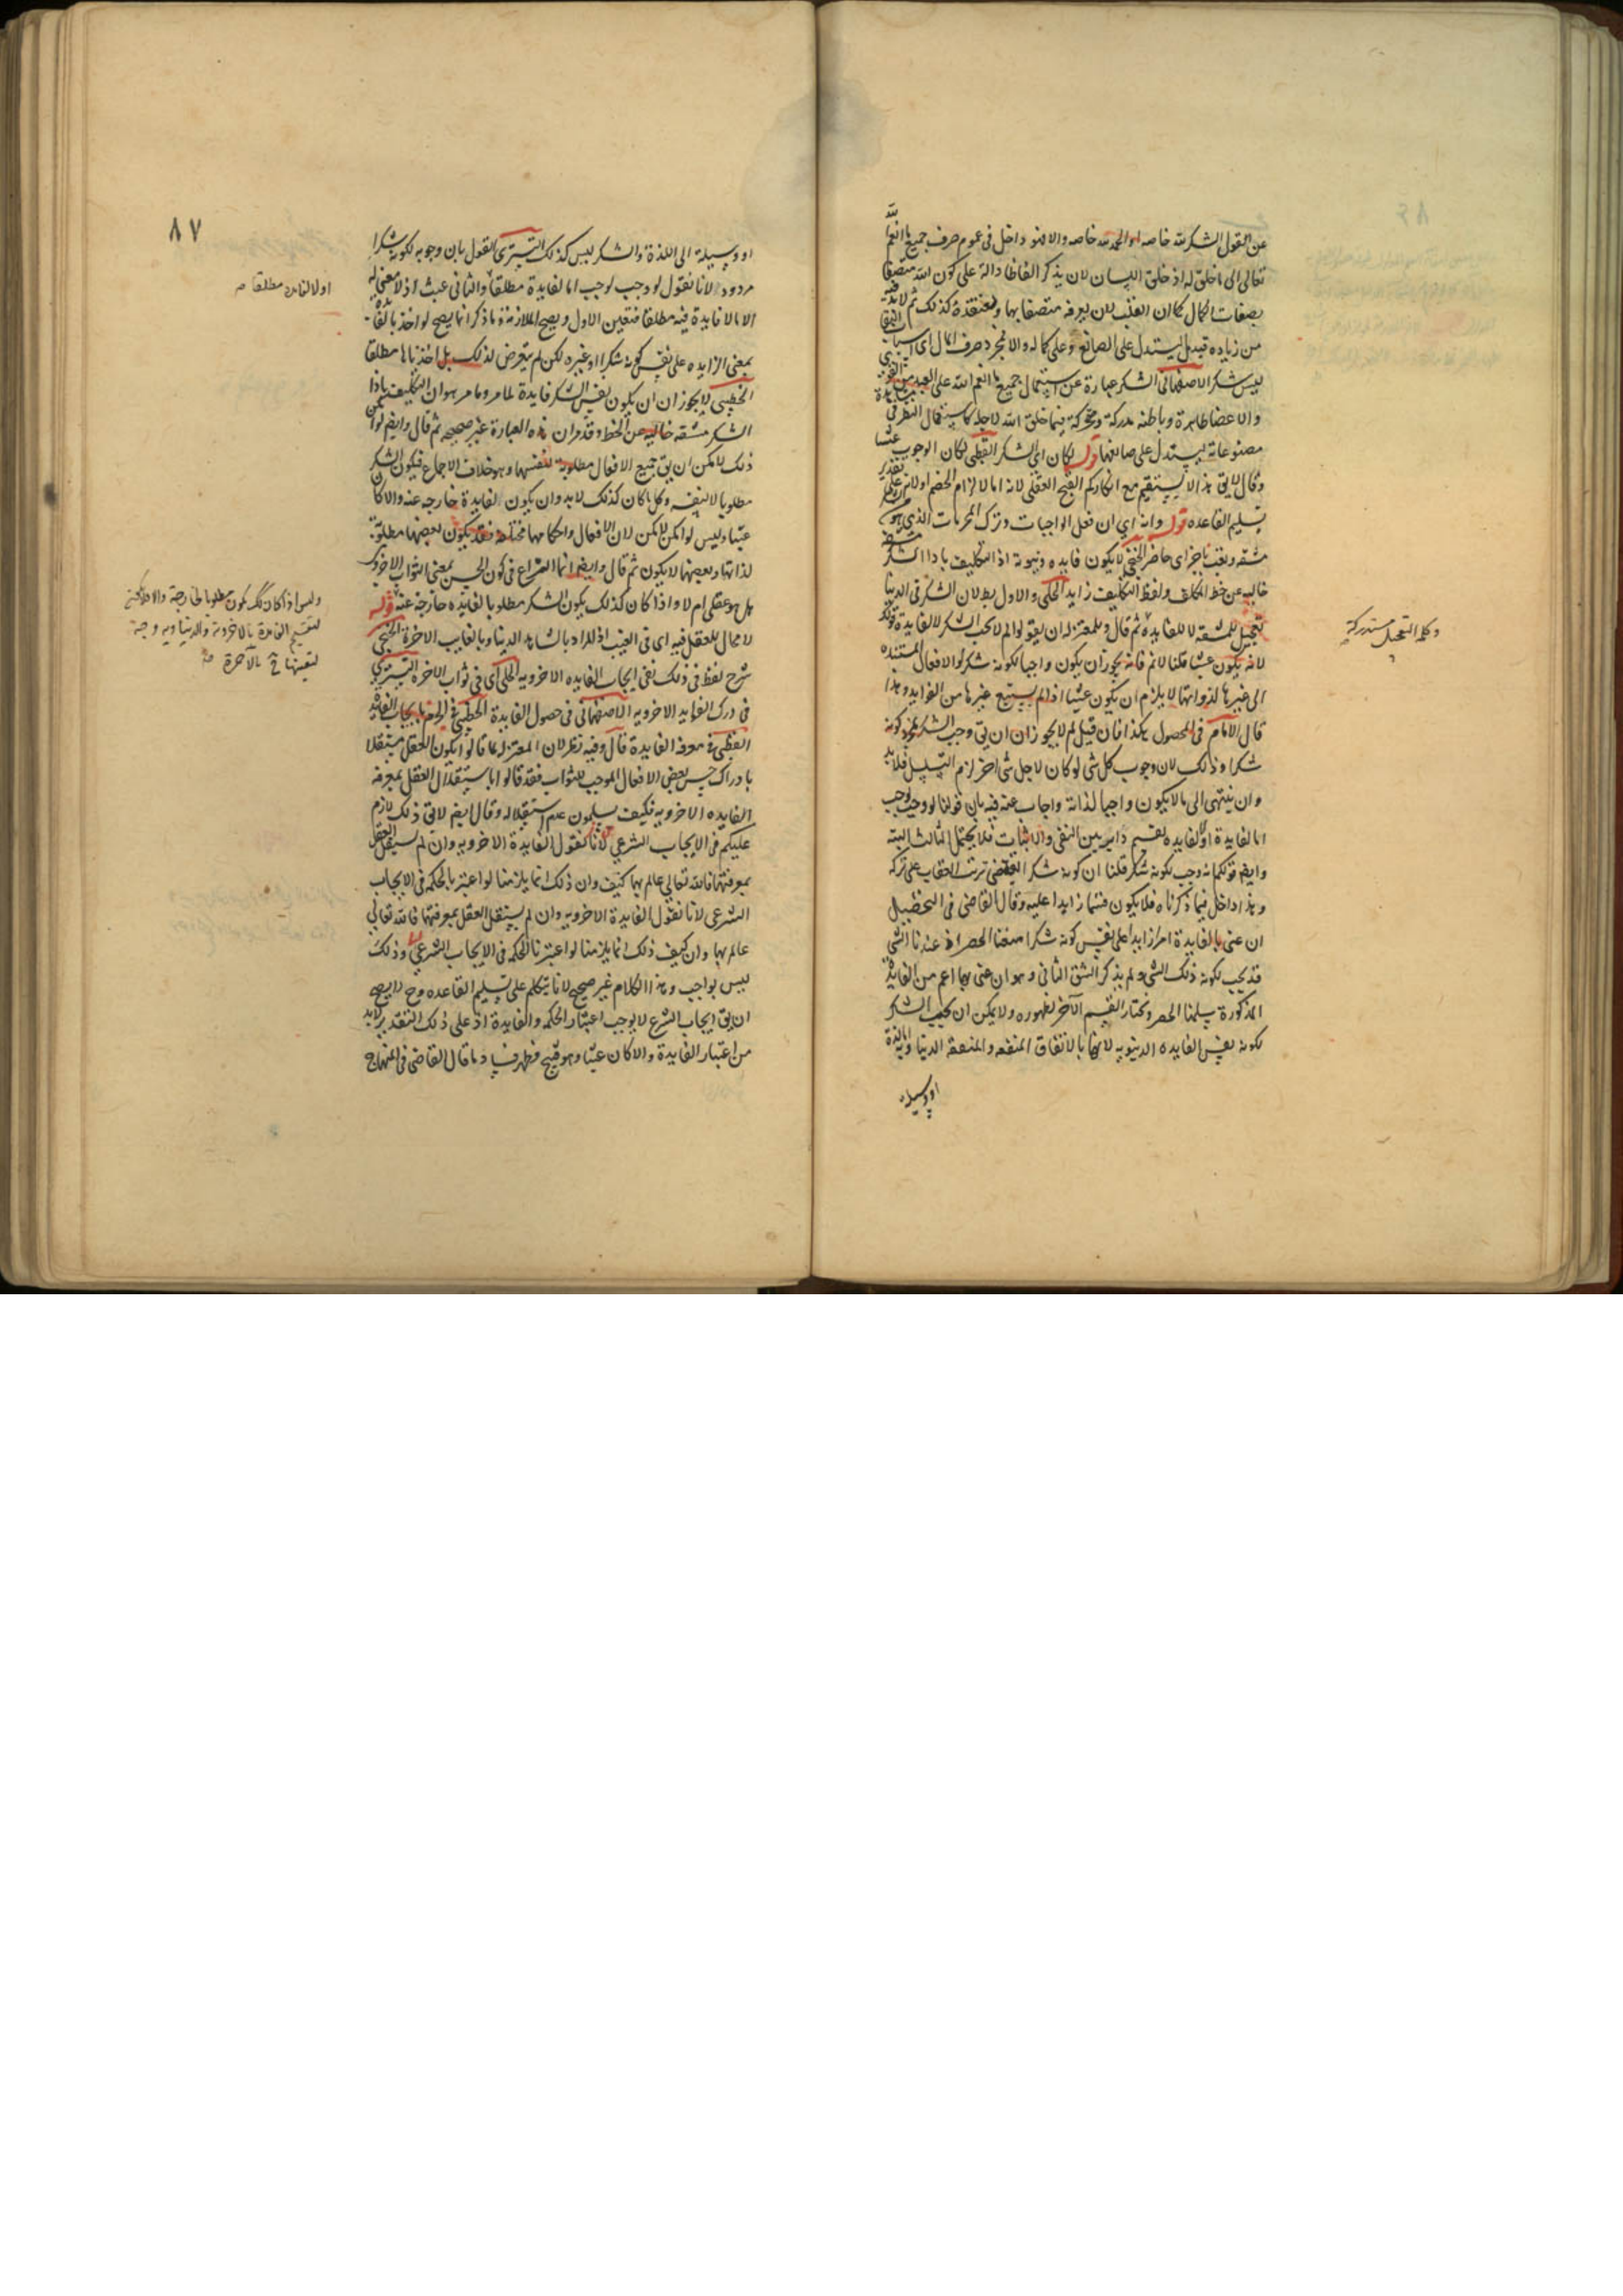 عن القول الشكر لله خاصه او الحمد لله خاصه والا فهو داخل في عموم صرف جميع ما انعم الله
تعالى الى ما خلق له اذ خلق اللسان لان يذكر الفاظا دالة على كون الله متصفا
بصفات الكمال كما ان القلب لان يعرفه متصفا بها ومعتقده كذلك ثم لا بد فيه
من زيادة قيد هل ليستدل على الصانع وعلى كماله والا فمجرد صرف المال اى
ليس شكر الاصفهانى الشكر عبارة عن استعمال جميع ما انعم الله على العبد من القوى
والاعضا ظاهرة وباطنة مدركة ومحركة فيما خلق الله لاجله كاستعمال النظر فى
مصنوعاته ليستدل على صانعها قوله لكان اى الشكر القطبى لكان الوجوب عبثا
وقال لا يق هذا لا يستقيم مع انكاركم القبح العقلى لانه اما لالزام الخصم او لانه على تقدير
تسليم القاعدة قوله وانه اى ان فعل الواجبات وترك المحرمات الذى هو
مشقه وتعب ناجز اى حاضر الخنجى لا يكون فايده دنيوية اذ التكليف باداا الشكر
خاليه عن حظ المكلف ولفظ التكليف زايد الحلى والاول بطلان الشكر فى الدنيا
تعجيل للمشقه لا للفايدة ثم قال وللمعتزله ان يقولوا لم لا يجب الشكر لا لفايدة قوله
لانه يكون عبثا قلنا لانم فانه يجوز ان يكون واجبا لكونه شكرا والافعال المستنده
الى غيرها لذواتها لا يلزم ان يكون عبثا اذا لم يستتبع غيرها من الفوايد وهذا
قال الامام فى المحصول هكذا فان قيل لم لا يجوز ان يق وجب الشكر لمجرد كونه
شكرا وذلك لان وجوب كل شى لو كان لاجل شى اخر لزم التسلسل فلا بد
وان ينتهى الى ما لا يكون واجبا لذاته واجاب عنه فيه بان قولنا لو وجب لوجب
اما لفايدة او لا لفايده تقسيم داير بين النفى والاثبات فلا يحتمل الثالث البته
وايضا قولكم انه وجب لكونه شكرا قلنا ان كونه شكرا يقتضى ترتب العقاب على تركه
وهذا داخل فيما ذكرناه فلا يكون قسما زايدا عليه وقال القاضى فى التحصيل
ان عنى بالفايدة امرا زايدا على نفس كونه شكرا منعنا الحصر اذ عندنا الشى
قد يجب لكونه ذلك الشى ولم يذكر الشق الثانى وهو ان عنى بها اعم من الفايدة
المذكورة سلمنا الحصر ونختار القسم الآخر لظهوره ولا يمكن ان يجب الشكر
لكونه نفس الفايده الدنيويه لانها بالاتفاق المنفعه والمنفعة الدنيا اما لذة
او وسيلة
وكلمة التعجيل مستدركة
٨٧
او وسيلة الى اللذة والشكر ليس كذلك التسترى القول بان وجوبه لكونه شكرا
مردود لانا نقول لو وجب لوجب اما لفايدة مطلقا والثانى عبث اذ لا معنى له
الا ما لا فايدة فيه مطلقا فتعين الاول ويصح الملازمة وما ذكر انما يصح لو اخذ بالفايدة
بمعنى الزايده على نفس كونه شكرا او غيره لكن لم يتعرض لذلك بل اخذ بها مطلقا
الخطيبى لا يجوز ان ان يكون نفس الشكر فايدة لما مر وما مر هو ان التكليف باداا
الشكر مشقه خاليه عن الحظ وقد مر ان هذه العبارة غير صحيحه ثم قال وايضا لو امكن
ذلك لامكن ان يق جميع الافعال مطلوبة لنفسها وهو خلاف الاجماع فيكون الشكر
مطلوبا لا لنفسه وكل ما كان كذلك لا بد وان يكون لفايدة خارجه عنه والا كان
عبثا وليس لو امكن لامكن لان الافعال واحكامها مختلفه فقد يكون بعضها مطلوبة
لذاتها وبعضها لا يكون ثم قال وايضا انما النزاع فى كون الحسن بمعنى الثواب الاخروى
هل هو عقلى ام لا واذا كان كذلك يكون الشكر مطلوبا لفايده خارجه عنه قوله
لا مجال للعقل فيه اى فى الغيب اذ المراد بالشاهد الدنيا وبالغايب الاخرة الخنجى
شرح لفظ فى ذلك نفى ايجاب الفايده الاخرويه الحلى اى فى ثواب الاخرة التسترى
فى درك الفوايد الاخرويه الاصفهانى فى حصول الفايدة الخطيبى فى الجزم بايجاب الفايدة
القطبى فى معرفه الفايدة قال وفيه نظر لان المعتزله لما قالوا بكون العقل مستقلا
بادراك حسن بعض الافعال الموجب للثواب فقد قالوا باستقلال العقل بمعرفه
الفايده الاخرويه فكيف يسلمون عدم استقلاله وقال ايضا لا يق ذلك لازم
عليكم فى الايجاب الشرعى لانا نقول الفايدة الاخرويه وان لم يستقل العقل
بمعرفتها فالله تعالى عالم بها كيف وان ذلك انما يلزمنا لو اعتبرنا الحكمه فى الايجاب
الشرعى لانا نقول الفايدة الاخرويه وان لم يستقل العقل بمعرفتها فالله تعالى
عالم بها وان كيف ذلك انما يلزمنا لو اعتبرنا الحكمه فى الايجاب الشرعى وذلك
ليس بواجب وهذا الكلام غير صحيح لانا نتكلم على تسليم القاعده وح لا يصح
ان يق ايجاب الشرع لا يوجب اعتبار الحكمه والفايدة اذ على ذلك التقدير لا بد
من اعتبار الفايدة والا كان عبثا وهو قبيح فظهر فساد ما قال القاضى فى المنهاج
او لا لفايده مطلقا
وليس اذا كان كذلك يكون مطلوبا لخارجة
لتقسيم الفايدة بالاخروية والدنياويه
بالآخرة